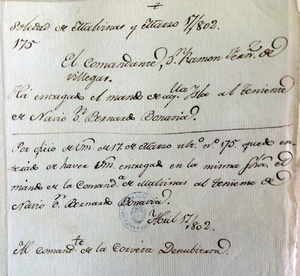 Soledad de Malvinas y Marzo 17/802.
175
El Comandante, Dn. Ramon Fern.z de
Villegas.
Ha entregado el mando de aq.lla Isla al Teniente
de Navio Dn. Bernardo Bonavia.
Por oficio de Vm. de 17 de Marzo ult.o n.o 175 quedo en-
terado de haver Vm. entregado en la misma fha. el
mando de la Comand.a de Malvinas al Teniente de
Navio Dn. Bernardo Bonavia.
Abril 17/802.
Al Comand.te de la Corveta Descubierta.